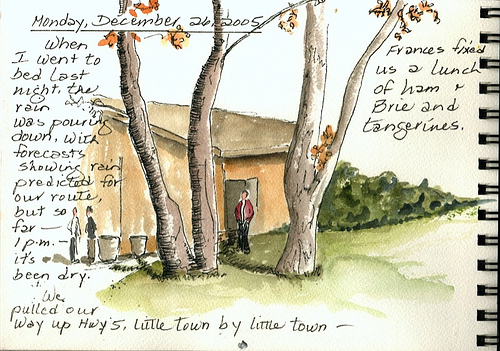 Monday, December 26, 2005
When
I went to
bed last
night, the
rain
was pouring
down, with
forecasts
showing rain
predicted for
our route,
but so
far —
1 p.m. —
it's
been dry.
We
pulled our
way up Hwy 5, little town by little town —
Frances fixed
us a lunch
of ham &
Brie and
tangerines.